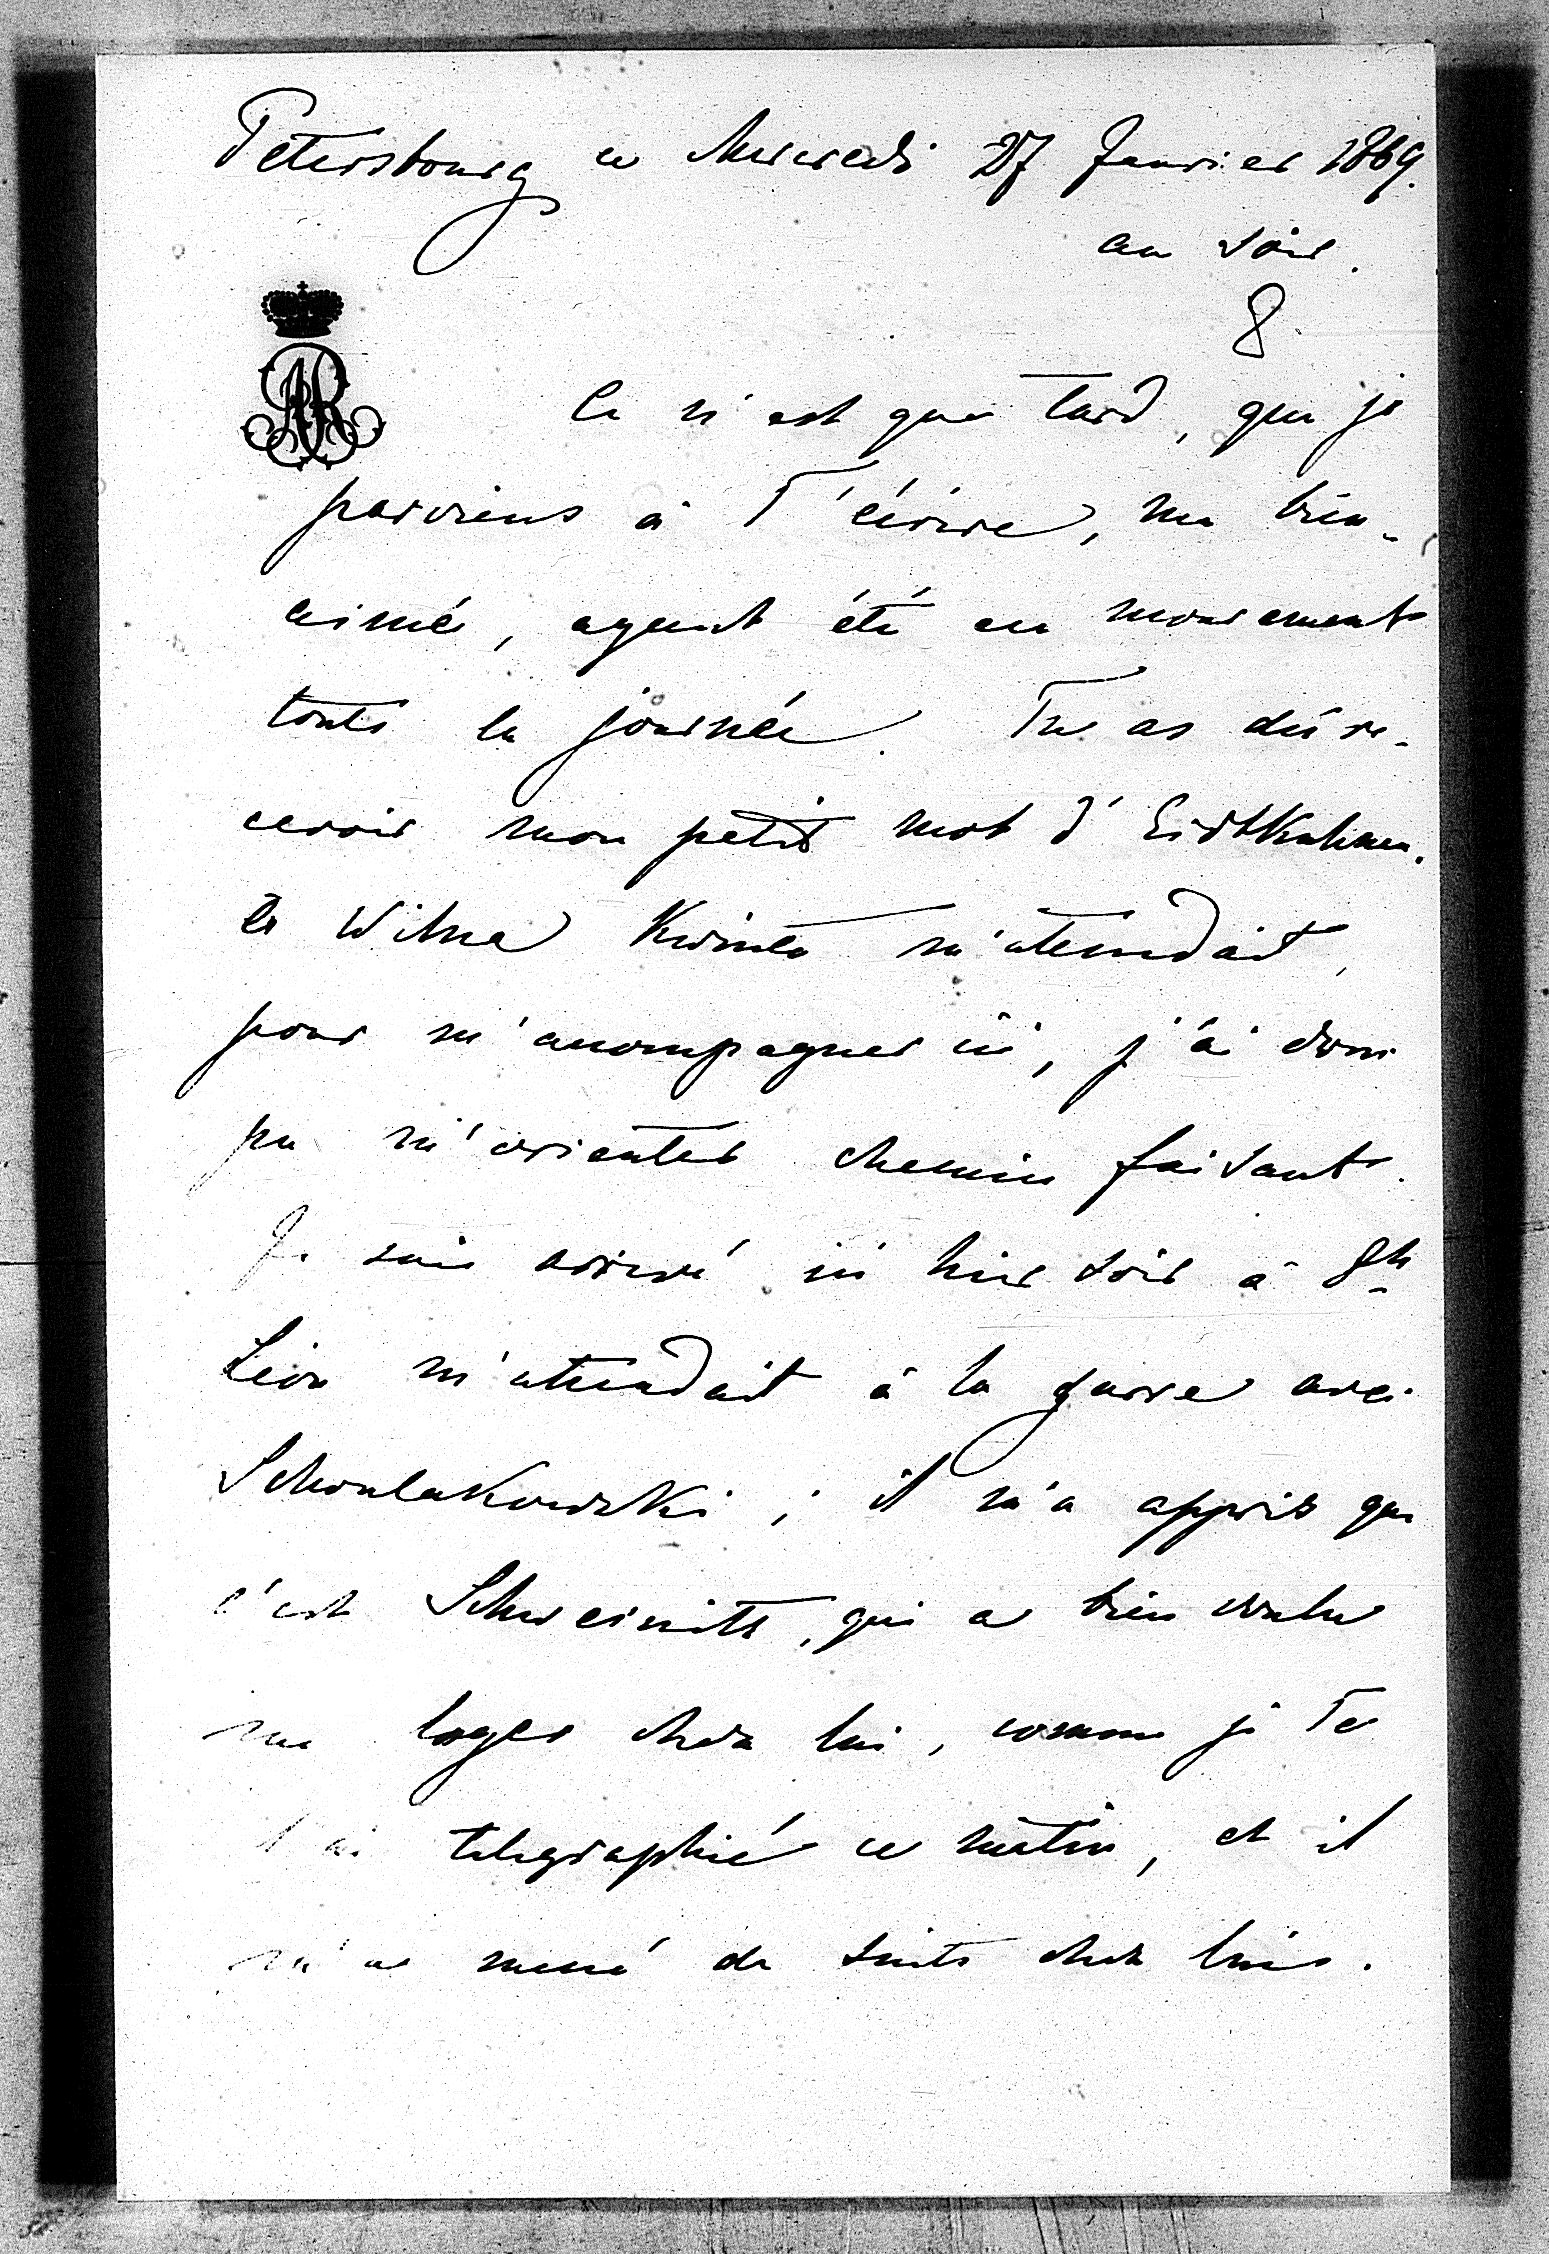 Petersbourg ce Mercredi 27 Janvier 1869.
au soir.
8
Ce n'est que tard, que je
parviens à T'écrire, ma bien-
aimée, ayant été en mouvement
toute la journée. Tu as dû re-
cevoir mon petit mot d'Eidtkuhnen.
à Wilna Kwinto m'attendait,
pour m'accompagner ici, j'ai donc
pu m'orienter chemin faisant.
Je suis arrivé ici hier soir à 8h
Léon m'attendait à la garre avec
Schoulakowski; il m'a appris que
c'est Schweinitz, qui a bien voulu
me loger chez lui, comme je Te
l'ai telegraphié ce matin, et il
m'a mené de suite chez lui.